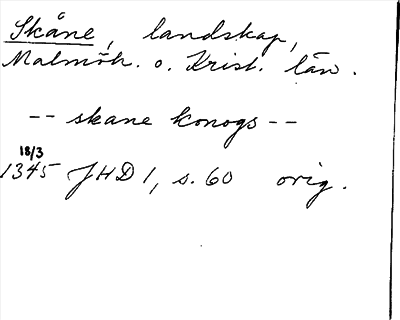 Skåne, landskap,
Malmöh. o. Krist. län.
-- skane konogs --
18/3
1345 JHD 1, s. 60 orig.